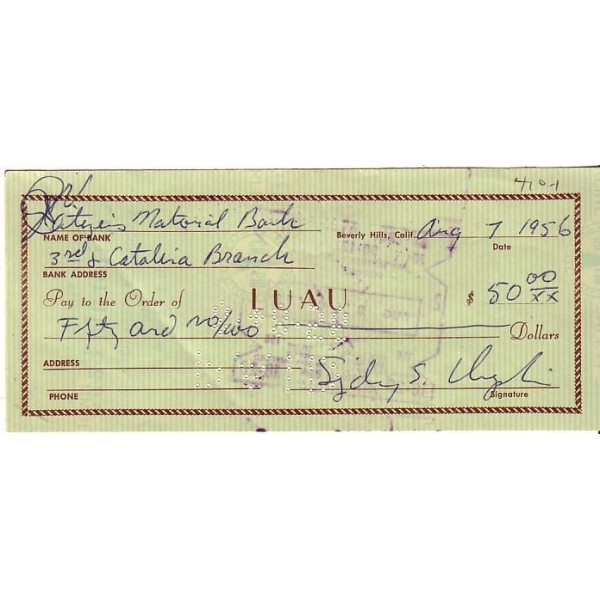 4101
Citizens National Bank
NAME OF BANK
Beverly Hills, Calif. Aug 7 1956
Date
3rd & Catalina Branch
BANK ADDRESS
Pay to the Order of LUAU $ 50 00/xx
Fifty and no/100 Dollars
ADDRESS
Sydney S.
PHONE
Signature